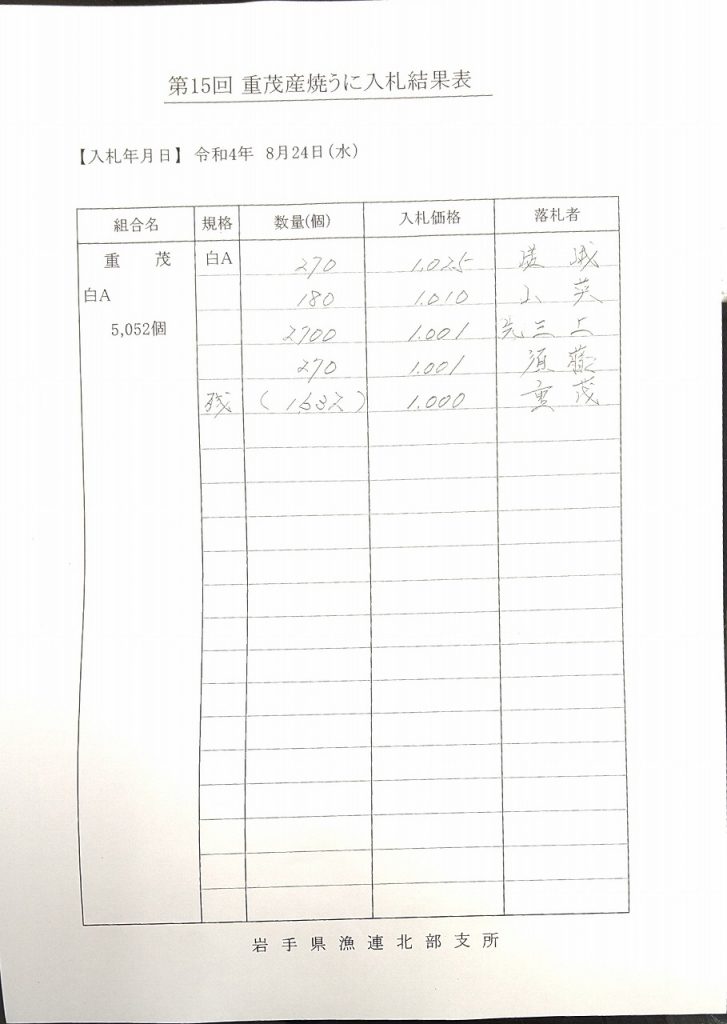 第15回 重茂産焼うに入札結果表
【入札年月日】 令和4年 8月24日(水)
組合名 規格 数量(個) 入札価格 落札者
重 茂 白A 270 1.025
白A 180 1.010
5,052個 2700 1.001
270 1.001 須藤
残 (1,632) 1.000 重茂
岩手県漁連北部支所